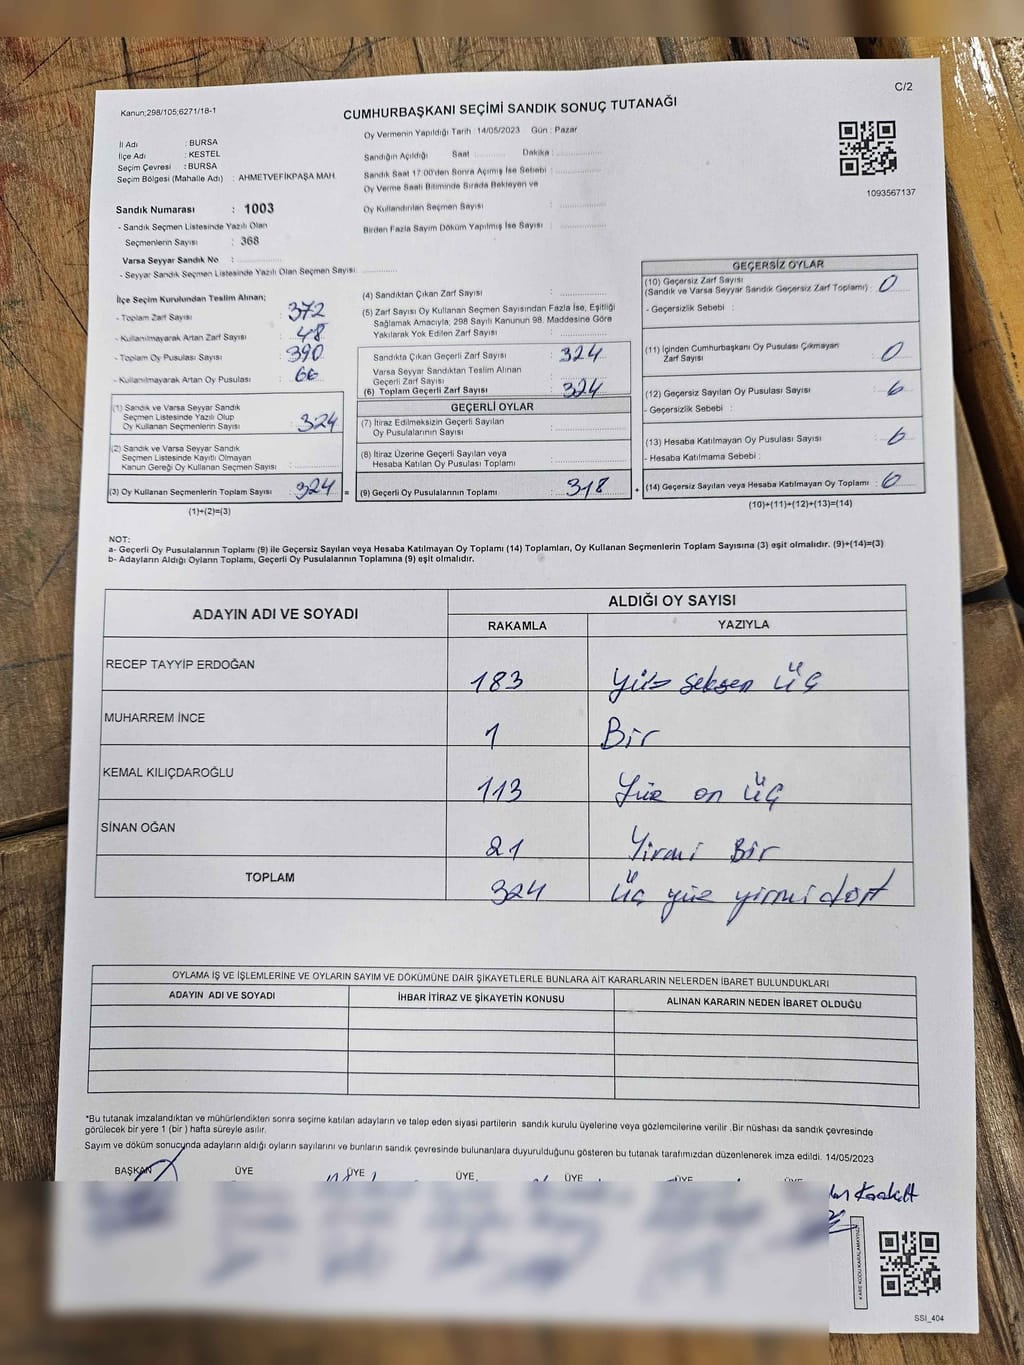 C/2
Kanun;298/105;6271/18-1
CUMHURBAŞKANI SEÇİMİ SANDIK SONUÇ TUTANAĞI
Oy Vermenin Yapıldığı Tarih : 14/05/2023 Gün : Pazar
İl Adı : BURSA
İlçe Adı : KESTEL
Seçim Çevresi : BURSA
Seçim Bölgesi (Mahalle Adı) : AHMETVEFİKPAŞA MAH.
Sandığın Açıldığı Saat ............ Dakika : ............
Sandık Saat 17.00'den Sonra Açımış İse Sebebi : ............
Oy Verme Saati Bitiminde Sırada Bekleyen ve
Oy Kullandırılan Seçmen Sayısı : ............
Birden Fazla Sayım Döküm Yapılmış İse Sayısı : ............
1093567137
Sandık Numarası : 1003
- Sandık Seçmen Listesinde Yazılı Olan
Seçmenlerin Sayısı : 368
Varsa Seyyar Sandık No : ............
- Seyyar Sandık Seçmen Listesinde Yazılı Olan Seçmen Sayısı: ............
İlçe Seçim Kurulundan Teslim Alınan;
- Toplam Zarf Sayısı : 372
- Kullanılmayarak Artan Zarf Sayısı : 48
- Toplam Oy Pusulası Sayısı : 390
- Kullanılmayarak Artan Oy Pusulası : 66
(1) Sandık ve Varsa Seyyar Sandık
Seçmen Listesinde Yazılı Olup
Oy Kullanan Seçmenlerin Sayısı : 324
(2) Sandık ve Varsa Seyyar Sandık
Seçmen Listesinde Kayıtlı Olmayan
Kanun Gereği Oy Kullanan Seçmen Sayısı : ............
(3) Oy Kullanan Seçmenlerin Toplam Sayısı : 324 =
(1)+(2)=(3)
(4) Sandıktan Çıkan Zarf Sayısı : ............
(5) Zarf Sayısı Oy Kullanan Seçmen Sayısından Fazla İse, Eşitliği
Sağlamak Amacıyla, 298 Sayılı Kanunun 98. Maddesine Göre
Yakılarak Yok Edilen Zarf Sayısı : ............
Sandıkta Çıkan Geçerli Zarf Sayısı : 324
Varsa Seyyar Sandıktan Teslim Alınan
Geçerli Zarf Sayısı : ............
(6) Toplam Geçerli Zarf Sayısı : 324
GEÇERLİ OYLAR
(7) İtiraz Edilmeksizin Geçerli Sayılan
Oy Pusulalarının Sayısı : ............
(8) İtiraz Üzerine Geçerli Sayılan veya
Hesaba Katılan Oy Pusulası Toplamı : ............
(9) Geçerli Oy Pusulalarının Toplamı : 318 +
GEÇERSİZ OYLAR
(10) Geçersiz Zarf Sayısı
(Sandık ve Varsa Seyyar Sandık Geçersiz Zarf Toplamı) : 0
- Geçersizlik Sebebi :
(11) İçinden Cumhurbaşkanı Oy Pusulası Çıkmayan
Zarf Sayısı : 0
(12) Geçersiz Sayılan Oy Pusulası Sayısı : 6
- Geçersizlik Sebebi :
(13) Hesaba Katılmayan Oy Pusulası Sayısı : 6
- Hesaba Katılmama Sebebi :
(14) Geçersiz Sayılan veya Hesaba Katılmayan Oy Toplamı : 6
(10)+(11)+(12)+(13)=(14)
NOT:
a- Geçerli Oy Pusulalarının Toplamı (9) ile Geçersiz Sayılan veya Hesaba Katılmayan Oy Toplamı (14) Toplamları, Oy Kullanan Seçmenlerin Toplam Sayısına (3) eşit olmalıdır. (9)+(14)=(3)
b- Adayların Aldığı Oyların Toplamı, Geçerli Oy Pusulalarının Toplamına (9) eşit olmalıdır.
ADAYIN ADI VE SOYADI
ALDIĞI OY SAYISI
RAKAMLA YAZIYLA
RECEP TAYYİP ERDOĞAN 183 Yüz seksen üç
MUHARREM İNCE 1 Bir
KEMAL KILIÇDAROĞLU 113 Yüz on üç
SİNAN OĞAN 21 Yirmi Bir
TOPLAM 324 Üç yüz yirmi dört
OYLAMA İŞ VE İŞLEMLERİNE VE OYLARIN SAYIM VE DÖKÜMÜNE DAİR ŞİKAYETLERLE BUNLARA AİT KARARLARIN NELERDEN İBARET BULUNDUKLARI
ADAYIN ADI VE SOYADI İHBAR İTİRAZ VE ŞİKAYETİN KONUSU ALINAN KARARIN NEDEN İBARET OLDUĞU
*Bu tutanak imzalandıktan ve mühürlendikten sonra seçime katılan adayların ve talep eden siyasi partilerin sandık kurulu üyelerine veya gözlemcilerine verilir .Bir nüshası da sandık çevresinde
görülecek bir yere 1 (bir ) hafta süreyle asılır.
Sayım ve döküm sonucunda adayların aldığı oyların sayılarını ve bunların sandık çevresinde bulunanlara duyurulduğunu gösteren bu tutanak tarafımızdan düzenlenerek imza edildi. 14/05/2023
BAŞKAN ÜYE ÜYE ÜYE ÜYE ÜYE ÜYE
KARE KODU KARALAMAYINIZ
SSI_404